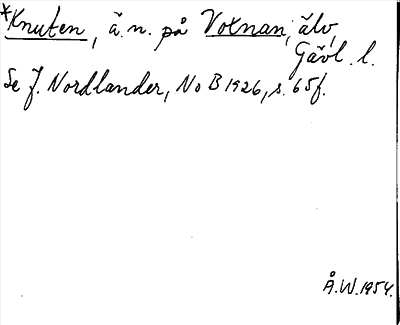 *Knuten, ä.n. på Voxnan, älv,
Gävl. l.
Se J. Nordlander, NoB 1926, s. 65f.
Å.W. 1954.